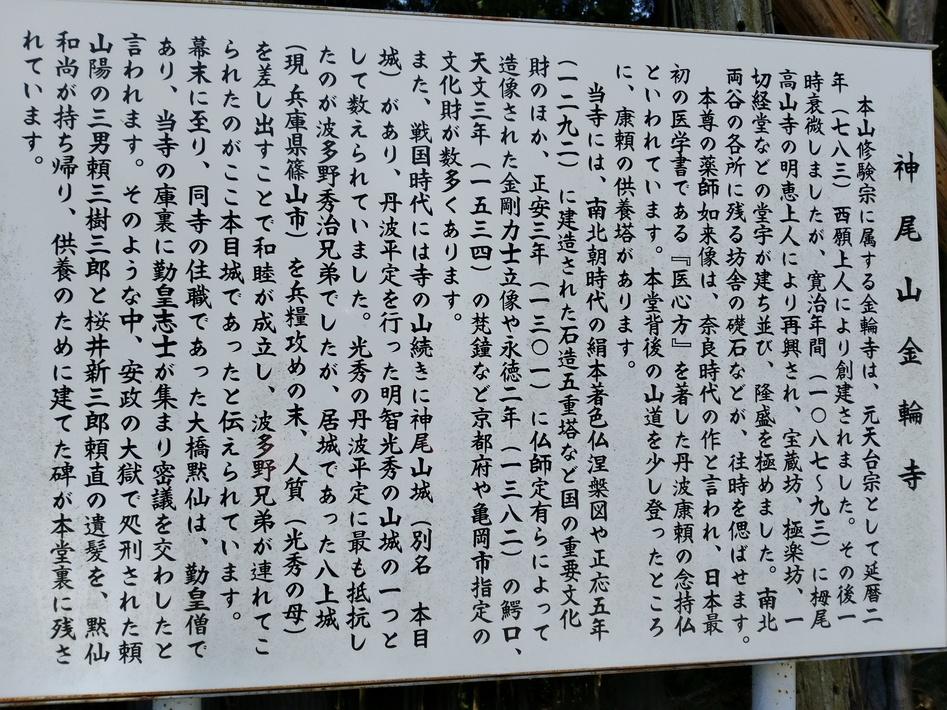 神尾山金輪寺
本山修験宗に属する金輪寺は、元天台宗として延暦二
年（七八三）西願上人により創建されました。その後一
時衰微しましたが、寛治年間（一〇八七～九三）に栂尾
高山寺の明恵上人により再興され、宝蔵坊、極楽坊、一
切経堂などの堂宇が建ち並び、隆盛を極めました。南北
両谷の各所に残る坊舎の礎石などが、往時を偲ばせます。
本尊の薬師如来像は、奈良時代の作と言われ、日本最
初の医学書である『医心方』を著した丹波康頼の念持仏
といわれています。本堂背後の山道を少し登ったところ
に、康頼の供養塔があります。
当寺には、南北朝時代の絹本著色仏涅槃図や正応五年
（一二九二）に建造された石造五重塔など国の重要文化
財のほか、正安三年（一三〇一）に仏師定有らによって
造像された金剛力士立像や永徳二年（一三八二）の鰐口、
天文三年（一五三四）の梵鐘など京都府や亀岡市指定の
文化財が数多くあります。
また、戦国時代には寺の山続きに神尾山城（別名　本目
城）があり、丹波平定を行った明智光秀の山城の一つと
して数えられていました。光秀の丹波平定に最も抵抗し
たのが波多野秀治兄弟でしたが、居城であった八上城
（現　兵庫県篠山市）を兵糧攻めの末、人質（光秀の母）
を差し出すことで和睦が成立し、波多野兄弟が連れてこ
られたのがここ本目城であったと伝えられています。
幕末に至り、同寺の住職であった大橋黙仙は、勤皇僧で
あり、当寺の庫裏に勤皇志士が集まり密議を交わしたと
言われます。そのような中、安政の大獄で処刑された頼
山陽の三男頼三樹三郎と桜井新三郎頼直の遺髪を、黙仙
和尚が持ち帰り、供養のために建てた碑が本堂裏に残さ
れています。